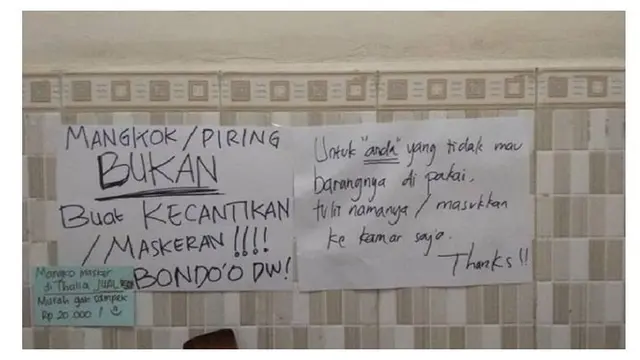 MANGKOK/PIRING
BUKAN
Buat KECANTIKAN
/MASKERAN !!!!
BONDO'O DW!
Mangko masker
di Thalia JUAL
Murah gan sampek
Rp 20.000 !
Untuk "anda" yang tidak mau
barangnya di pakai,
tulis namanya / masukkan
ke kamar saja.
Thanks!!